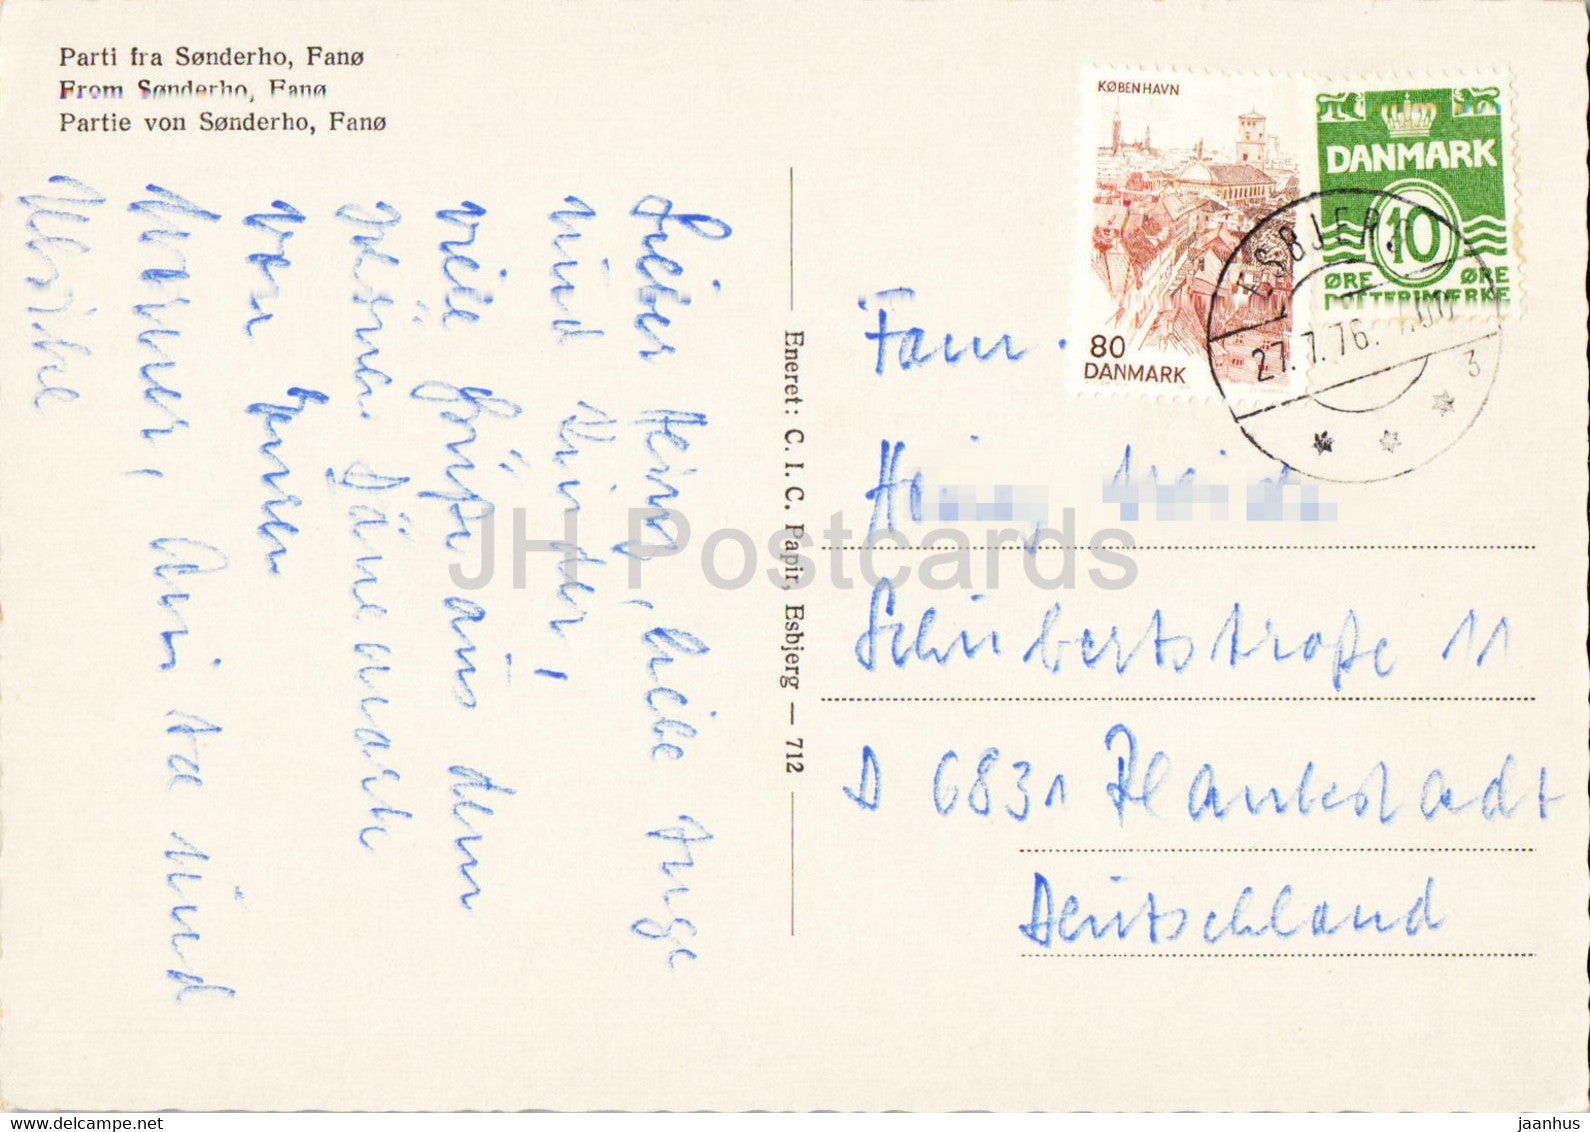 Parti fra Sønderho, Fanø
From Sønderho, Fanø
Partie von Sønderho, Fanø
Lieber Heinz, liebe Inge
und Kinder,
viele Grüße aus dem
schönen Dänemark
von Euren
Werner, Anita und
Ulrike
Eneret: C. I. C. Papir, Esbjerg — 712
KØBENHAVN
80
DANMARK
DANMARK
10
ØRE ØRE
ESBJERG
27.7.76.
3
Fam.
Schubertstraße 11
D 6831 Plankstadt
Deutschland
JH Postcards
hippostcard.com/store/jhpostcards
jaanhus